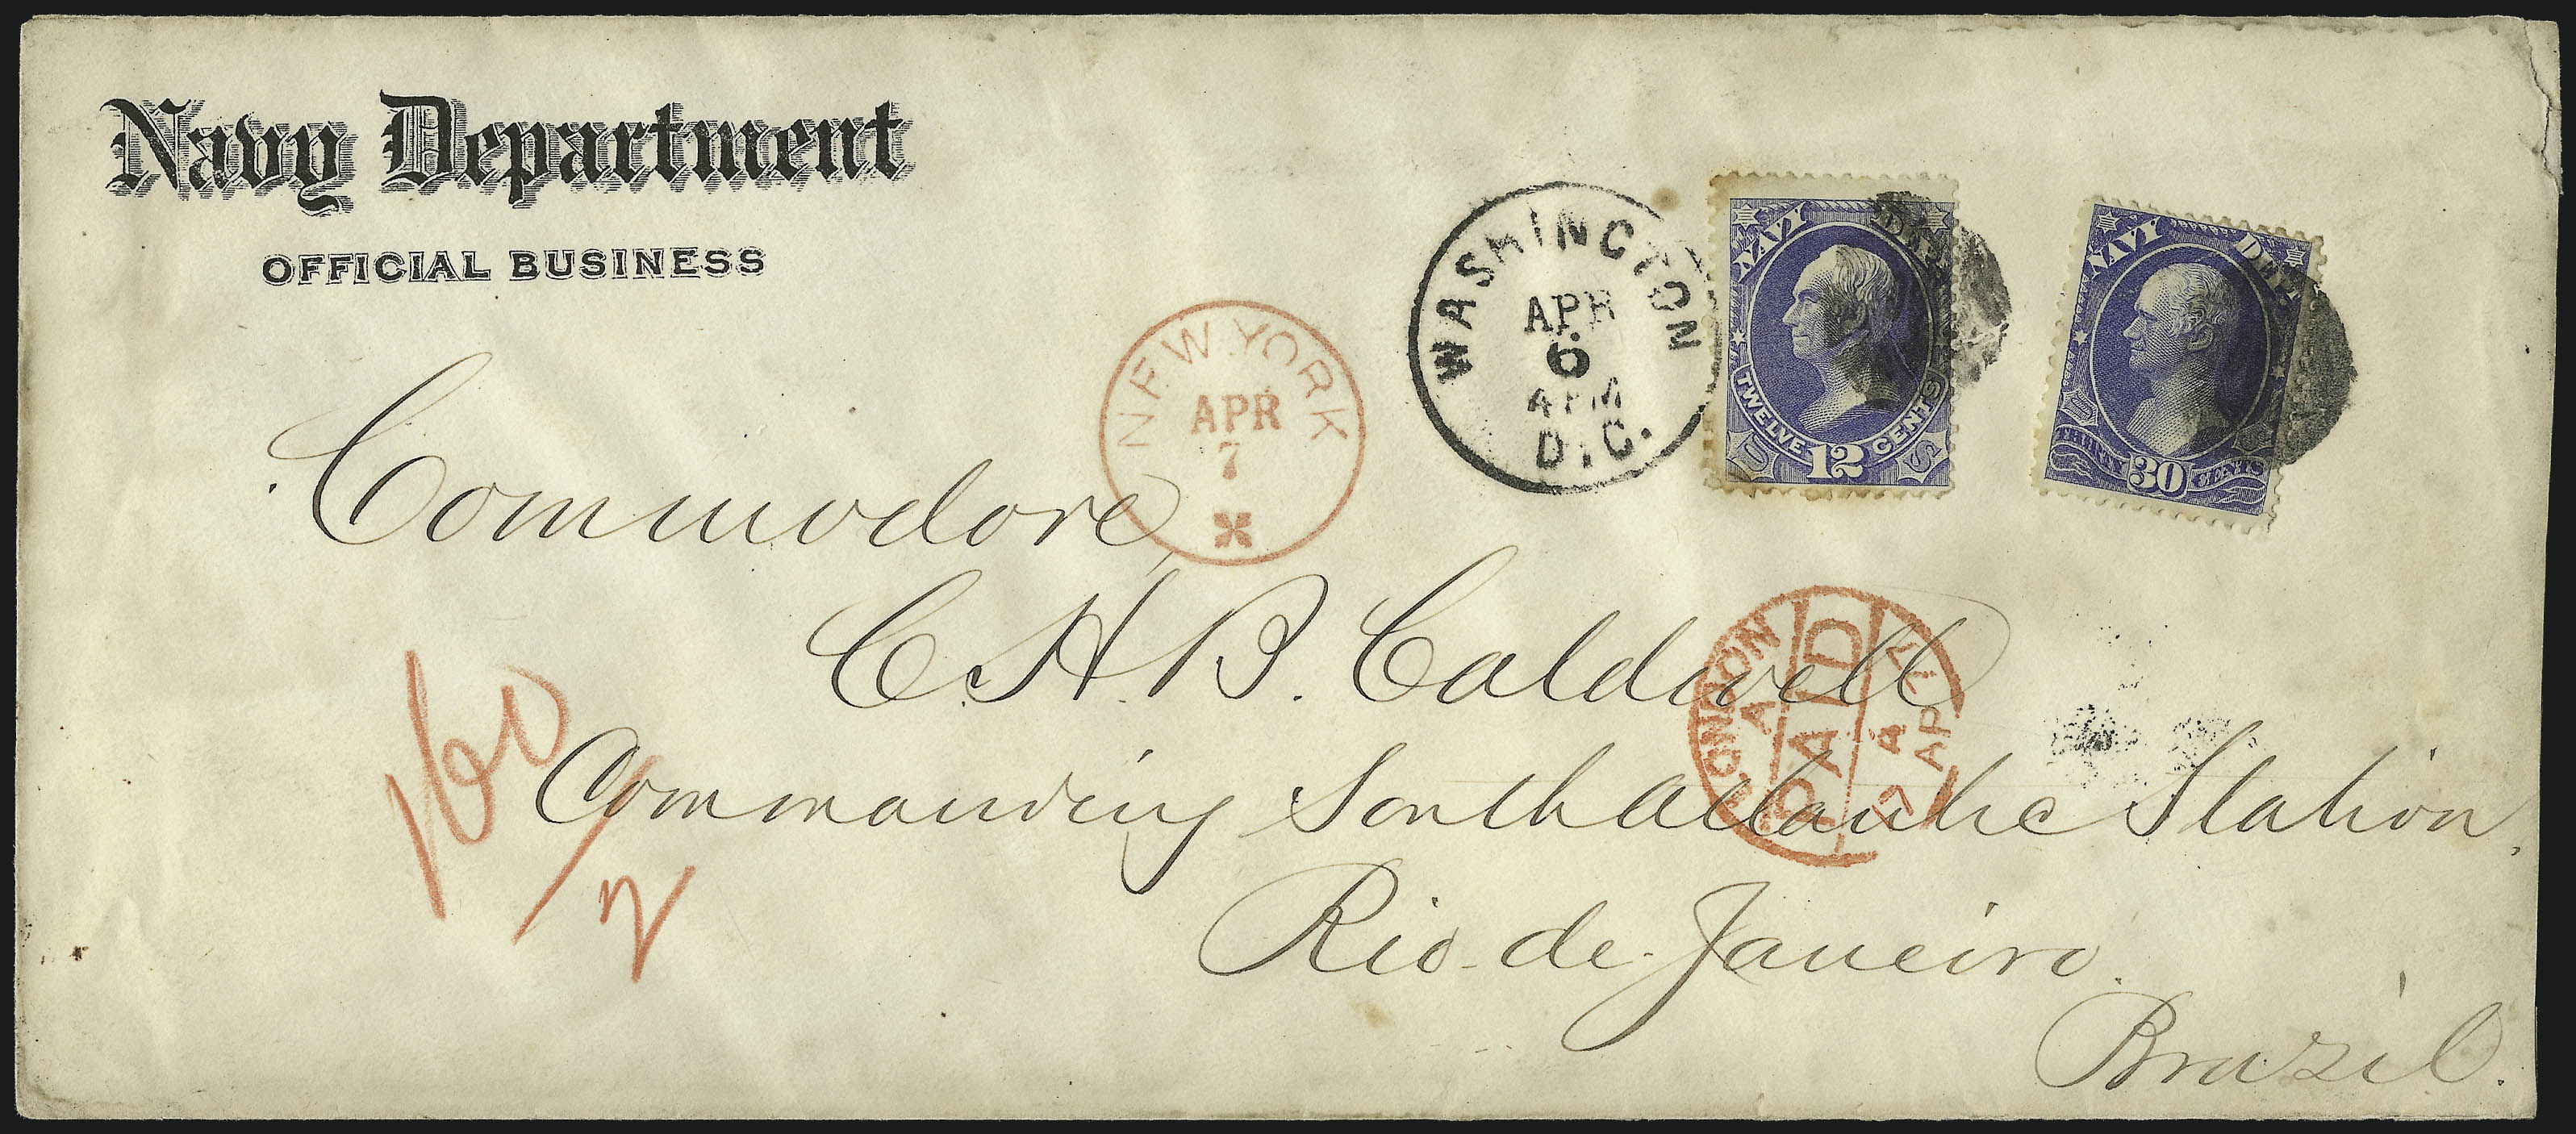 Navy Department
OFFICIAL BUSINESS
NEW YORK
APR
7
WASHINGTON
APR
6
4 PM
D.C.
NAVY DEPT.
TWELVE 12 CENTS
U S
NAVY DEPT.
THIRTY 30 CENTS
U S
Commodore,
C. H. B. Caldwell
Commanding South Atlantic Station,
Rio-de-Janeiro.
Brazil.
LONDON
A
PAID
AP 77
160/2